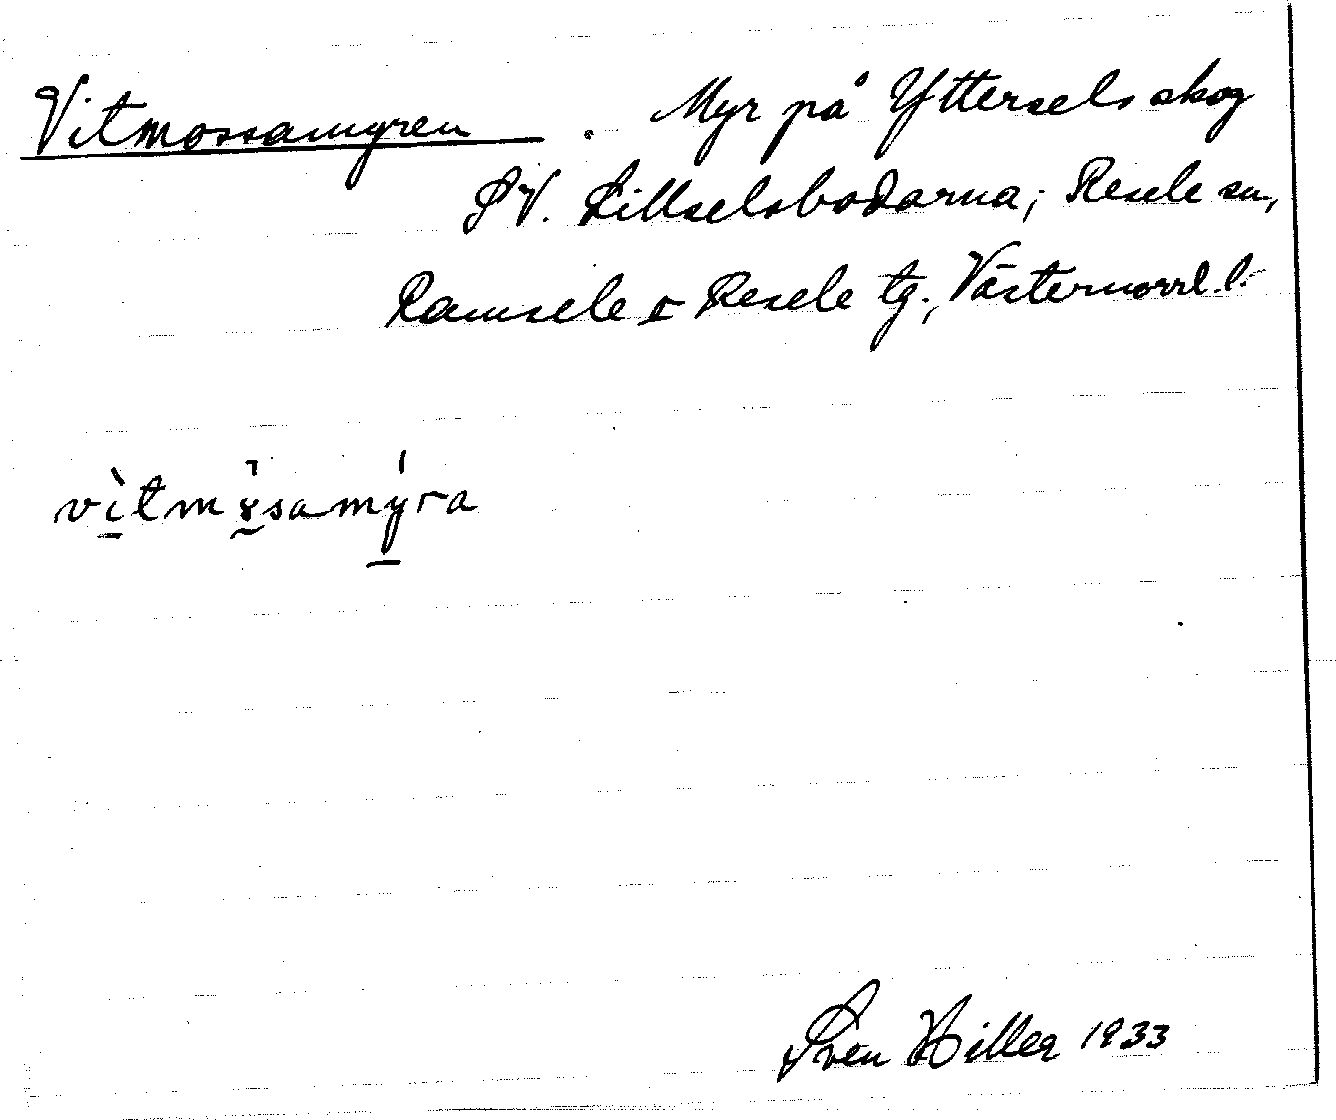 Vitmossamyren. Myr på Ytterselsskog
SV. Lillselsbodarna; Resele sn,
Ramsele o Resele tg., Västernorrl. l.
vìtmɤsamýra
Sven Hiller 1933